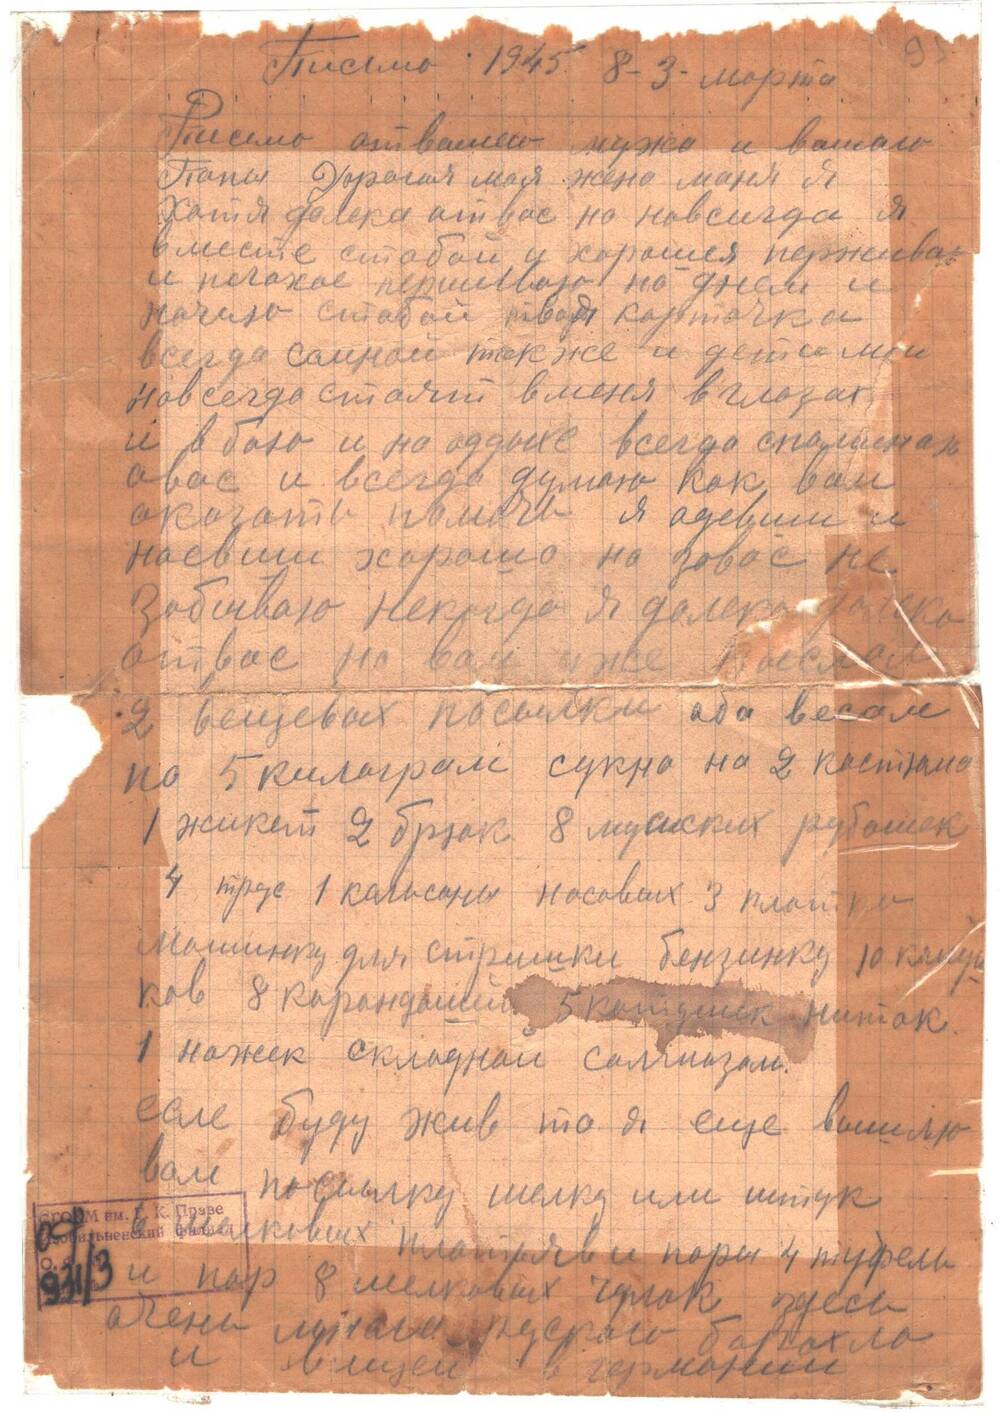 95
Письмо 1945 8-3-марта
Письмо отвашего мужа и вашаго
Папы Дарагая моя жена маня я
Хотя далека отвас но навсигда я
вместе стабой и хорошея пержива
и плахое перижваю но днем и
ночию стобой твоя карточка
всегда самной также и дети мои
навсегда стоят вменя вглазах
и в бою и на оддыхе всегда спаминаю
овас и всегда думаю как вам
аказать помочь я одевши и
наевши харашо но зовас не
Забываю некогда я далеко далеко
отвас но вам уже выслал
2 вещевых посылки оба весам
по 5 килограм сукна на 2 костюма
1 жикет 2 брюк 8 мужских рубашек
4 трус 1 кальсоны насовых 3 платка
машинку для стришки бензинку 10
ков 8 карандашей 5 катушек ниток.
1 ножек складной
есле буду жив то я еще вышлю
вам посылку шелку или штук
6 шелковых платьяв и пары 4 туфель
и пар 8 шелковых чулок здесь
очень многа барахло
и вищей в германии
СГОКМ им. Г. К. Праве
Изобильненский филиал
оф
931/3